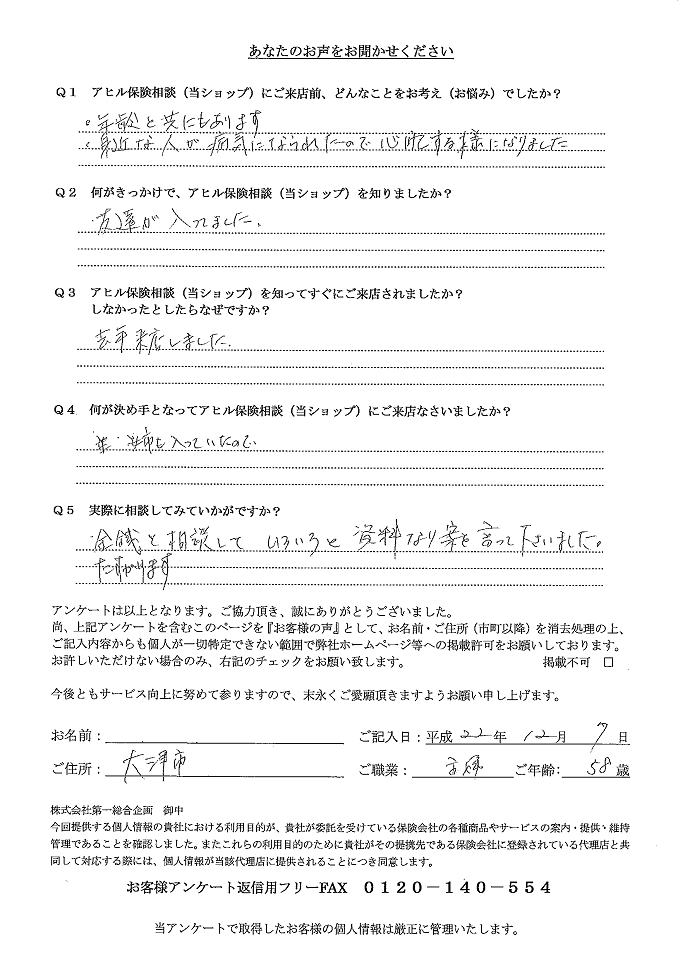 あなたのお声をお聞かせください
Q1 アヒル保険相談（当ショップ）にご来店前、どんなことをお考え（お悩み）でしたか？
・年齢と共にもあります
・身近な人が病気になられたので心配する様になりました
Q2 何がきっかけで、アヒル保険相談（当ショップ）を知りましたか？
・友達が入ってました。
Q3 アヒル保険相談（当ショップ）を知ってすぐにご来店されましたか？
しなかったとしたらなぜですか？
去年来店しました。
Q4 何が決め手となってアヒル保険相談（当ショップ）にご来店なさいましたか？
も入っていたので
Q5 実際に相談してみていかがですか？
・金銭と相談して いろいろと資料なり案を言って下さいました。
たすかります
アンケートは以上となります。ご協力頂き、誠にありがとうございました。
尚、上記アンケートを含むこのページを『お客様の声』として、お名前・ご住所（市町以降）を消去処理の上、
ご記入内容からも個人が一切特定できない範囲で弊社ホームページ等への掲載許可をお願いしております。
お許しいただけない場合のみ、右記のチェックをお願い致します。 掲載不可 □
今後ともサービス向上に努めて参りますので、末永くご愛願頂きますようお願い申し上げます。
お名前： ご記入日：平成 22年 12月 7日
ご住所： 大津市 ご職業： 主婦 ご年齢： 58歳
株式会社第一総合企画 御中
今回提供する個人情報の貴社における利用目的が、貴社が委託を受けている保険会社の各種商品やサービスの案内・提供・維持
管理であることを確認しました。またこれらの利用目的のために貴社がその提携先である保険会社に登録されている代理店と共
同して対応する際には、個人情報が当該代理店に提供されることにつき同意します。
お客様アンケート返信用フリーFAX ０１２０－１４０－５５４
当アンケートで取得したお客様の個人情報は厳正に管理いたします。